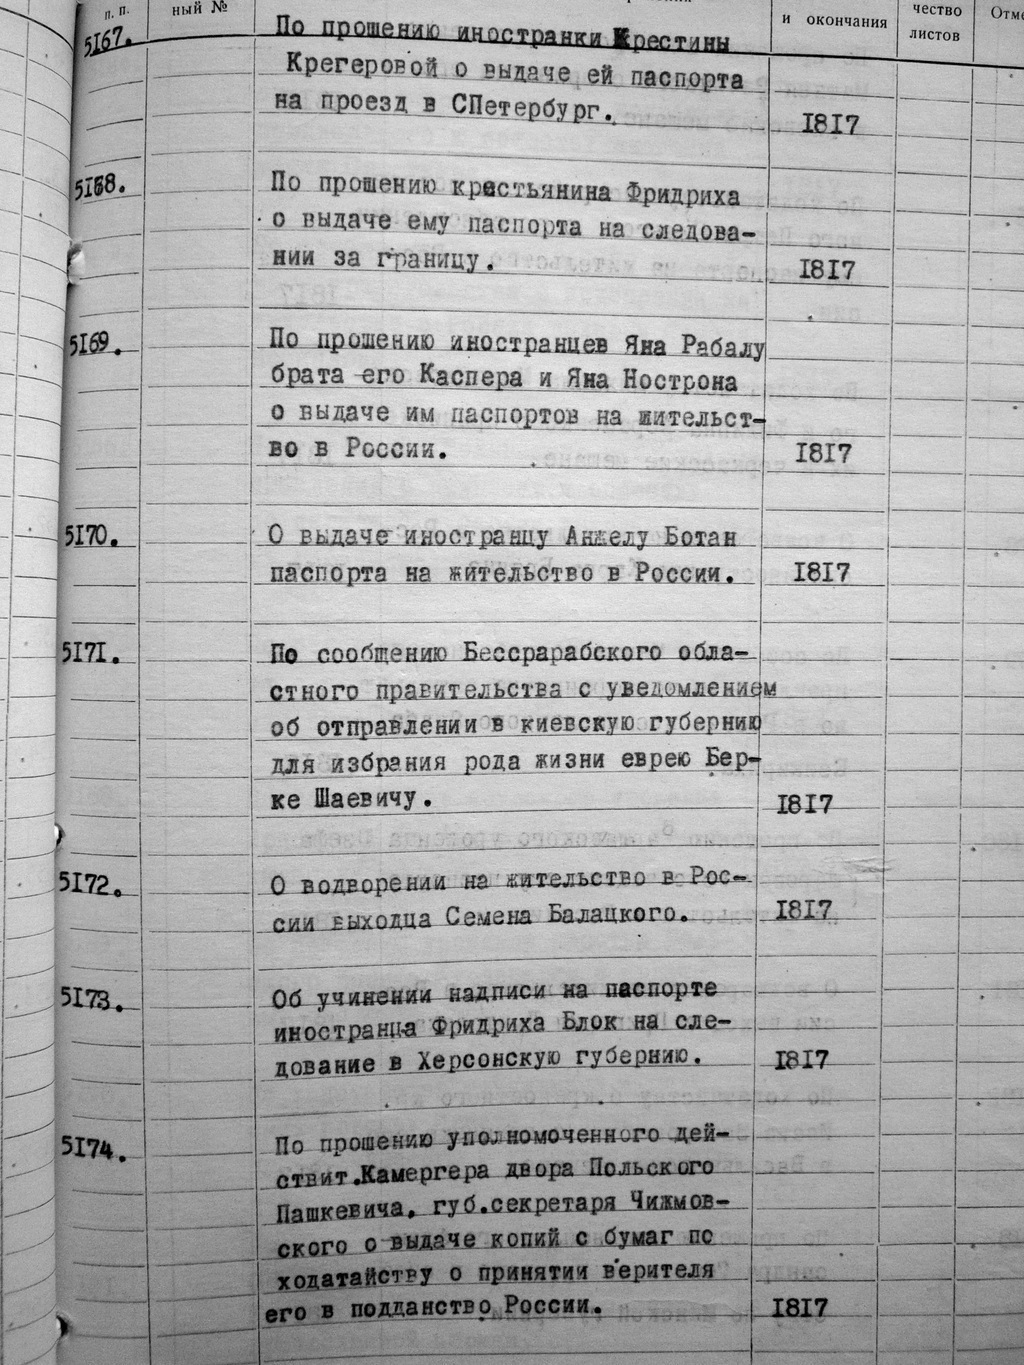 п. п.
ный №
и окончания
чество
листов
Отме
5167.
По прошению иностранки Крестины
Крегеровой о выдаче ей паспорта
на проезд в СПетербург.
1817
5168.
По прошению крестьянина Фридриха
о выдаче ему паспорта на следова-
нии за границу.
1817
5169.
По прошению иностранцев Яна Рабалу
брата его Каспера и Яна Нострона
о выдаче им паспортов на жительст-
во в России.
1817
5170.
О выдаче иностранцу Анжелу Ботан
паспорта на жительство в России.
1817
5171.
По сообщению Бессрарабского обла-
стного правительства с уведомлением
об отправлении в киевскую губернию
для избрания рода жизни еврею Бер-
ке Шаевичу.
1817
5172.
О водворении на жительство в Рос-
сии выходца Семена Балацкого.
1817
5173.
Об учинении надписи на паспорте
иностранца Фридриха Блок на сле-
дование в Херсонскую губернию.
1817
5174.
По прошению уполномоченного дей-
ствит.Камергера двора Польского
Пашкевича, губ.секретаря Чижмов-
ского о выдаче копий с бумаг по
ходатайству о принятии верителя
его в подданство России.
1817